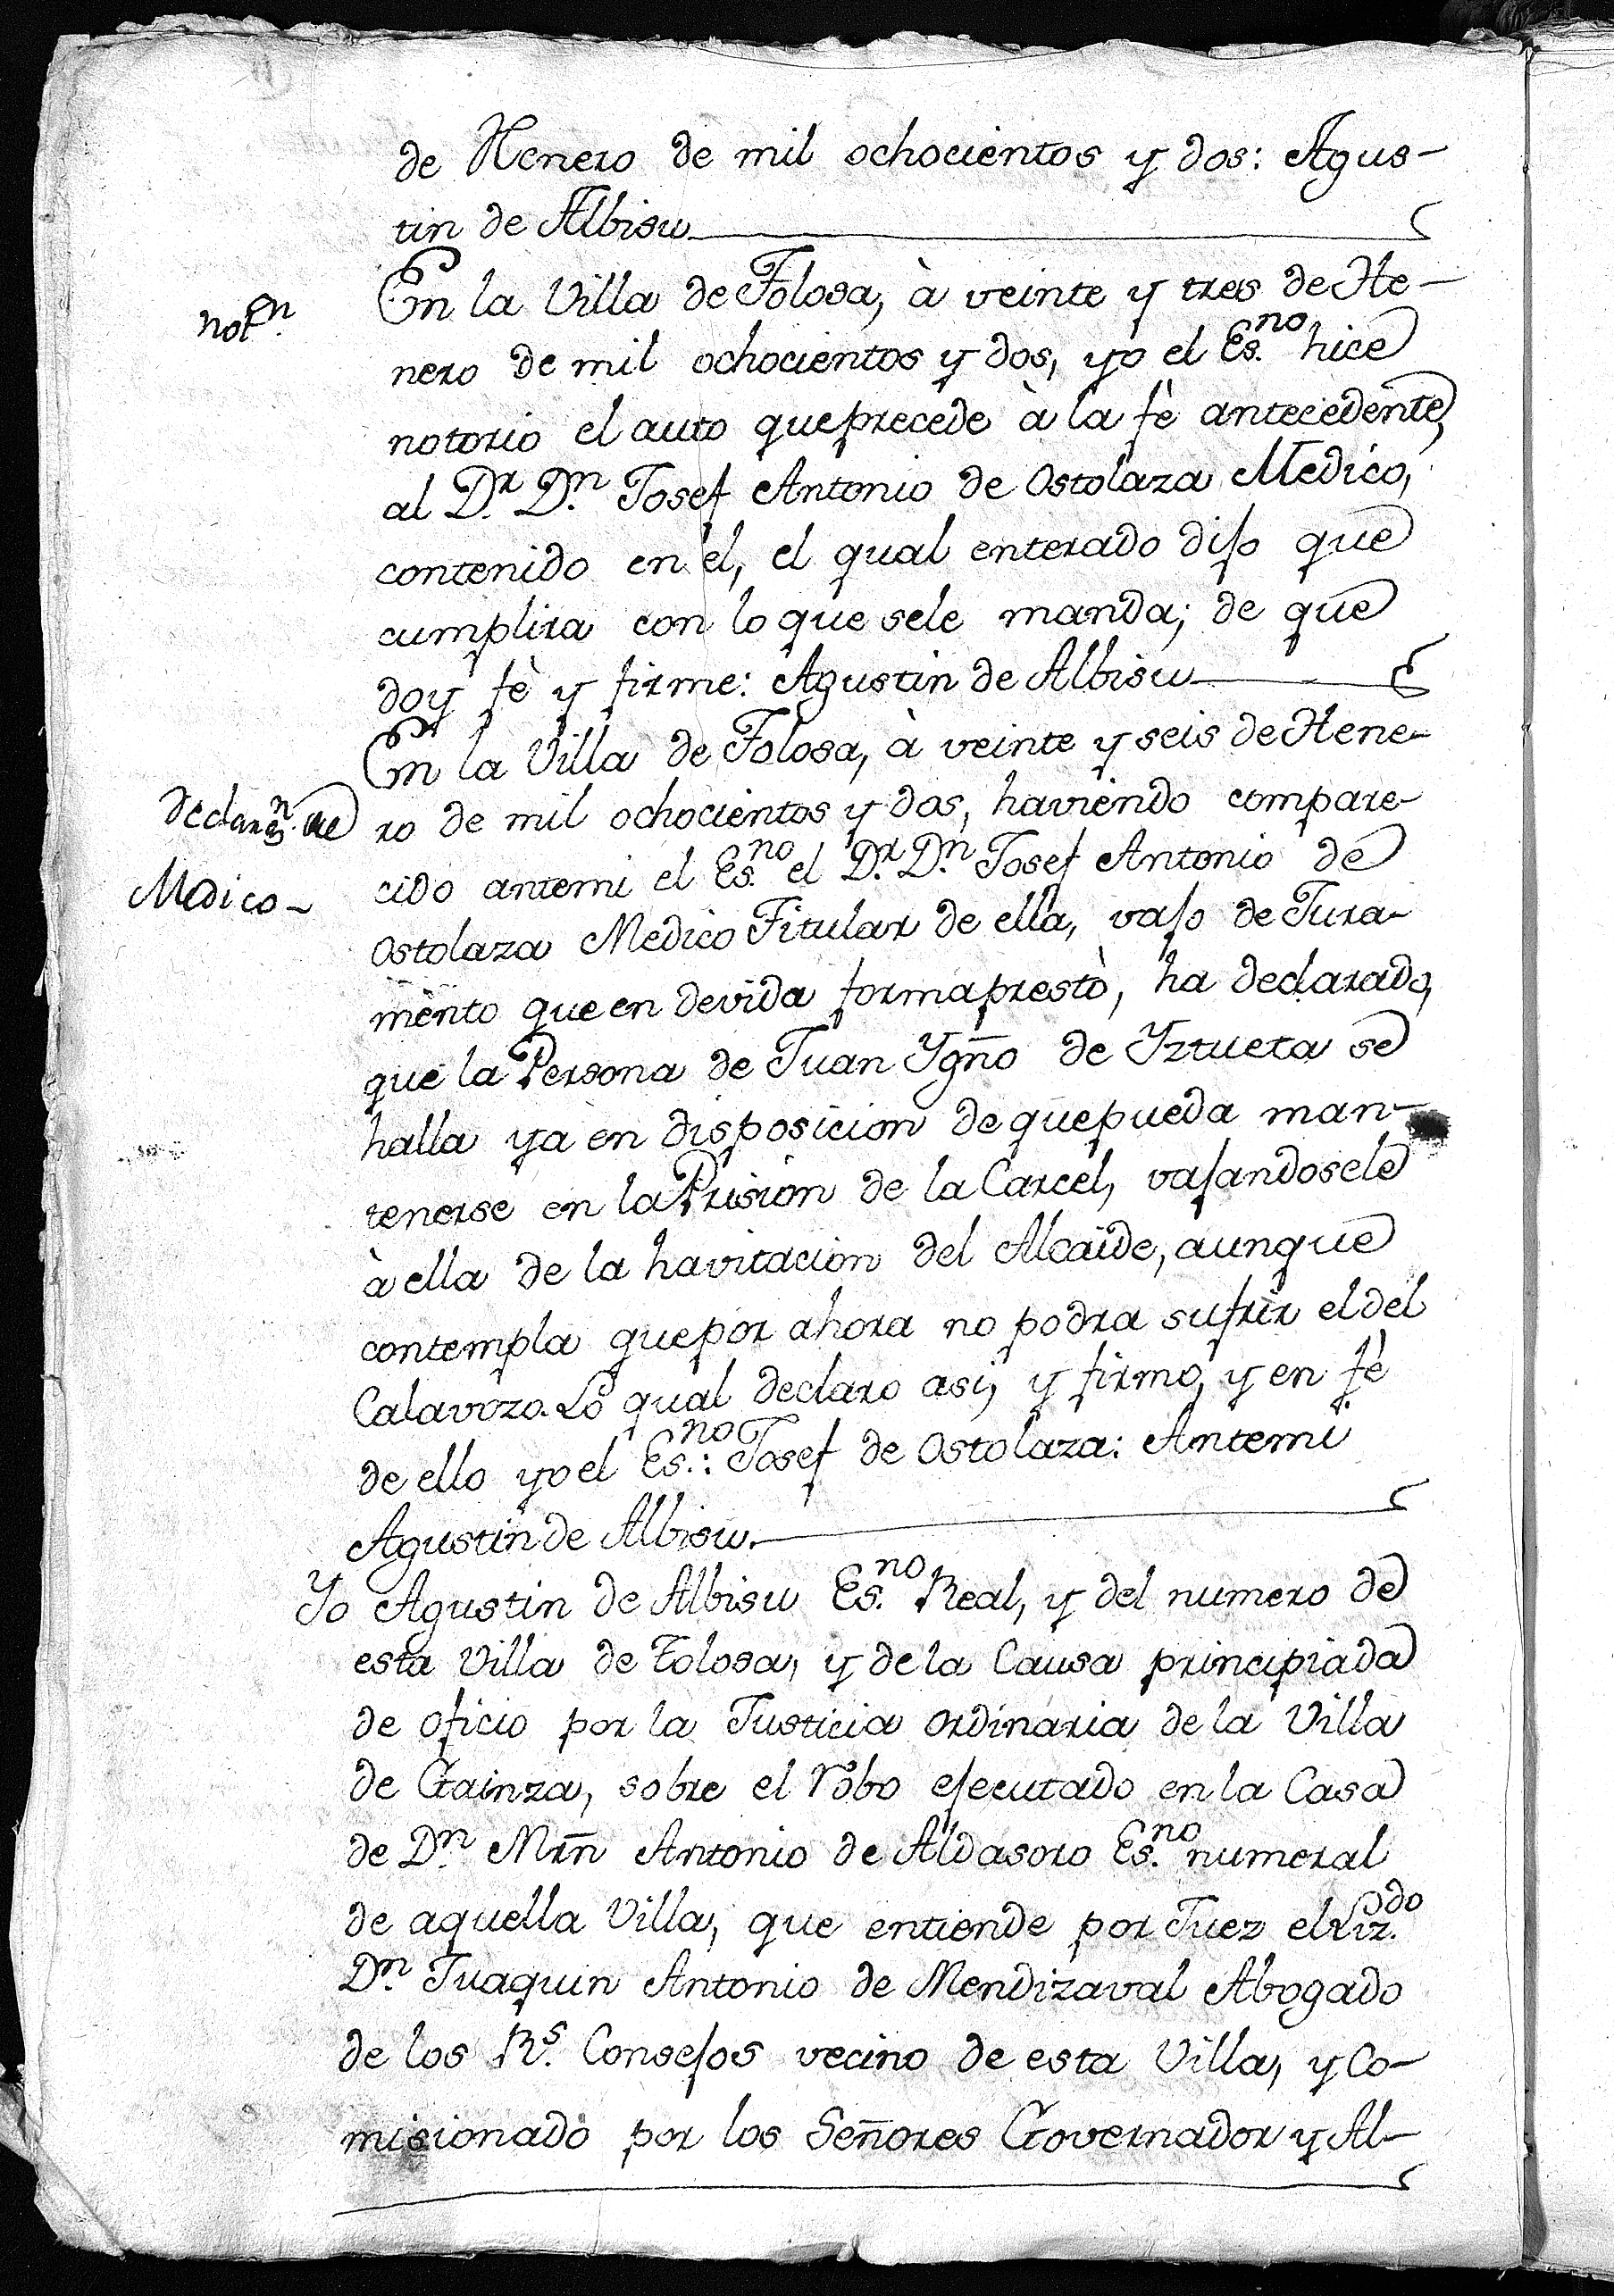 de Henero de mil ochocientos y dos: Agus-
tin de Albisu
notn.
En la Villa de Tolosa, à veinte y tres de He-
nero de mil ochocientos y dos, yo el Es.no hice
notorio el auto que precede à la fè antecedente,
al D.r D.n Josef Antonio de Ostolaza Medico,
contenido en el, el qual enterado dijo que
cumplira con lo que sele manda; de que
doy fè y firme: Agustin de Albisu
En la Villa de Tolosa, à veinte y seis de Hene-
Declaraz.n de
ro de mil ochocientos y dos, haviendo compare-
Medico-
cido antemi el Es.no el D.r D.n Josef Antonio de
Ostolaza Medico Titular de ella, vajo de Jura-
mento que en devida forma prestò, ha declarado,
que la Persona de Juan Ygño de Yztueta se
halla ya en disposicion de que pueda man-
tenerse en la Prision de la Carcel, vajandosele
à ella de la havitacion del Alcaide, aunque
contempla que por ahora no podra sufrir el del
Calavozo. Lo qual declaro asi, y firmo, y en fè
de ello yo el Es.no: Josef de Ostolaza: Antemi
Agustin de Albisu.
Yo Agustin de Albisu Es.no Real, y del numero de
esta Villa de Tolosa, y de la Causa principiada
de oficio por la Justicia ordinaria de la Villa
de Gainza, sobre el robo ejecutado en la Casa
de D.n Mrñ Antonio de Aldasoro Es.no numeral
de aquella Villa, que entiende por Juez el Liz.do
D.n Juaquin Antonio de Mendizaval Abogado
de los R.s Consejos vecino de esta Villa, y Co-
misionado por los Señores Governador y Al-